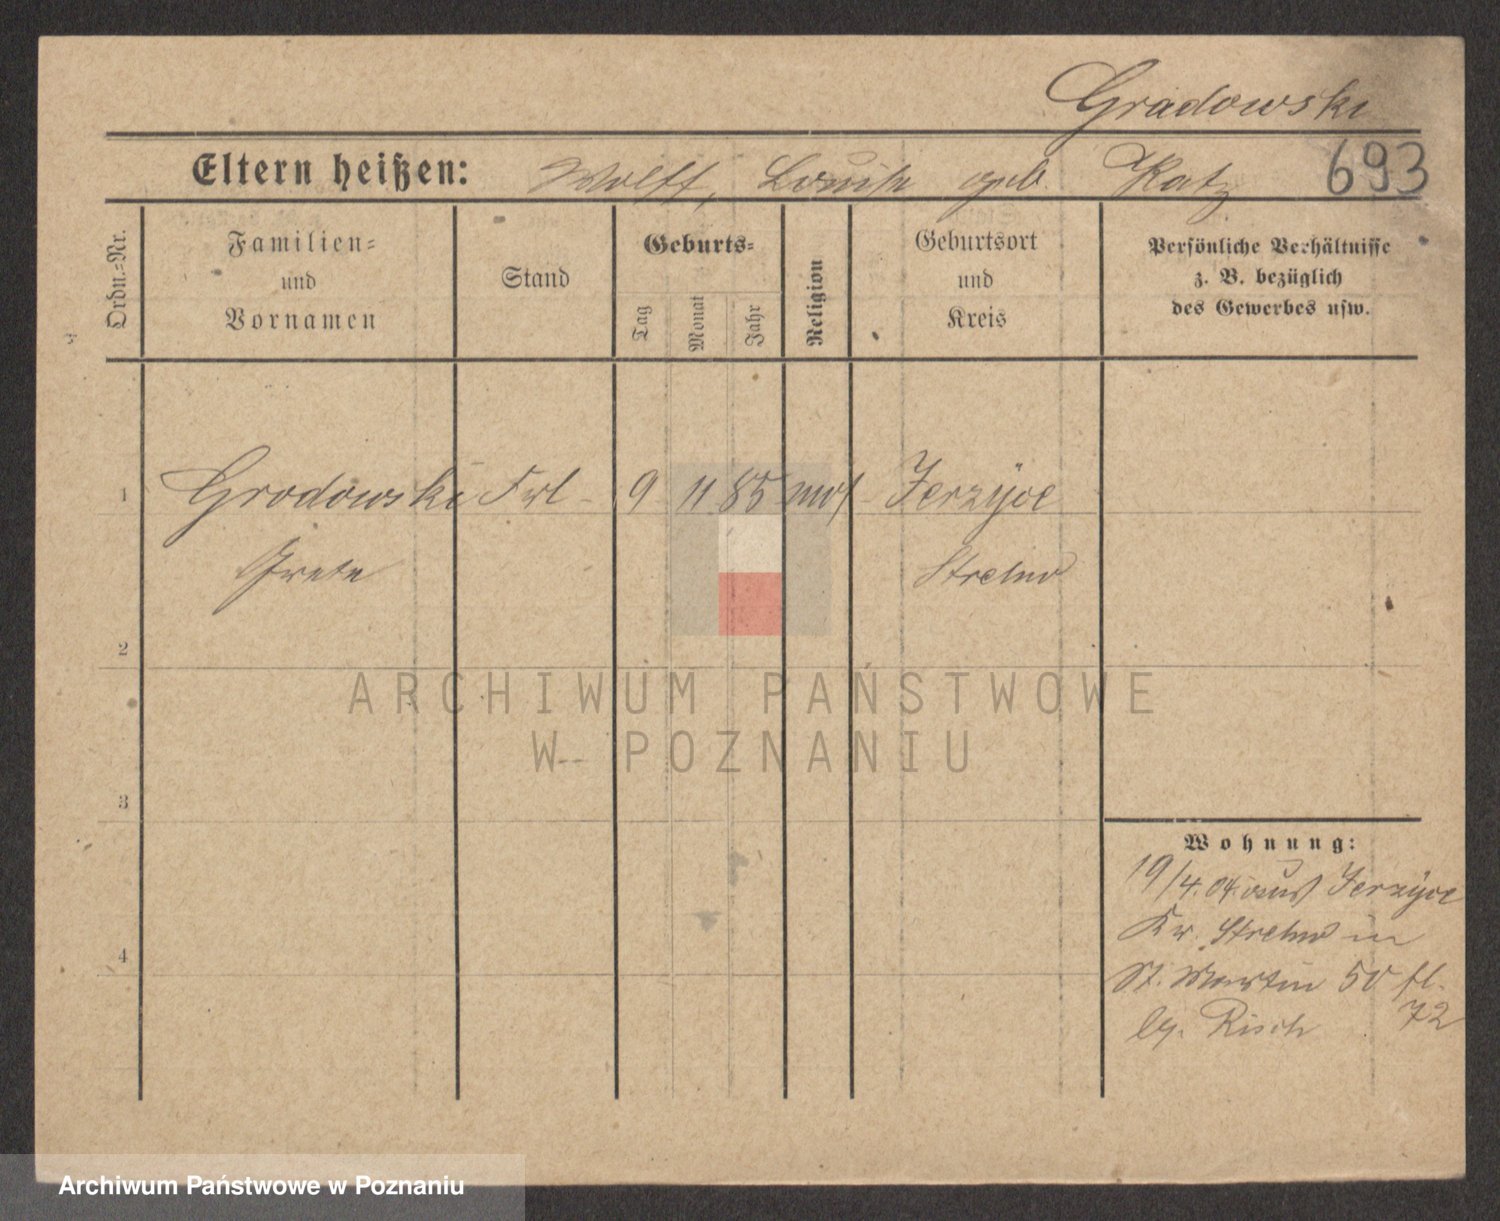 Gradowski
Eltern heißen: Wolff, Louise geb. Katz 693
Ordn.-Nr.
Familien-
und
Vornamen
Stand
Geburts-
Tag
Monat
Jahr
Religion
Geburtsort
und
Kreis
Persönliche Verhältnisse
z. B. bezüglich
des Gewerbes usw.
1 Grodowski Frl 9 11 85 mos Jerzyce
Grete Strelno
2
3
4
Wohnung:
19/4.04. aus Jerzyce
Kr. Strelno in
St. Martin 50 fl.
by. Risch 72
ARCHIWUM PAŃSTWOWE
W POZNANIU
Archiwum Państwowe w Poznaniu